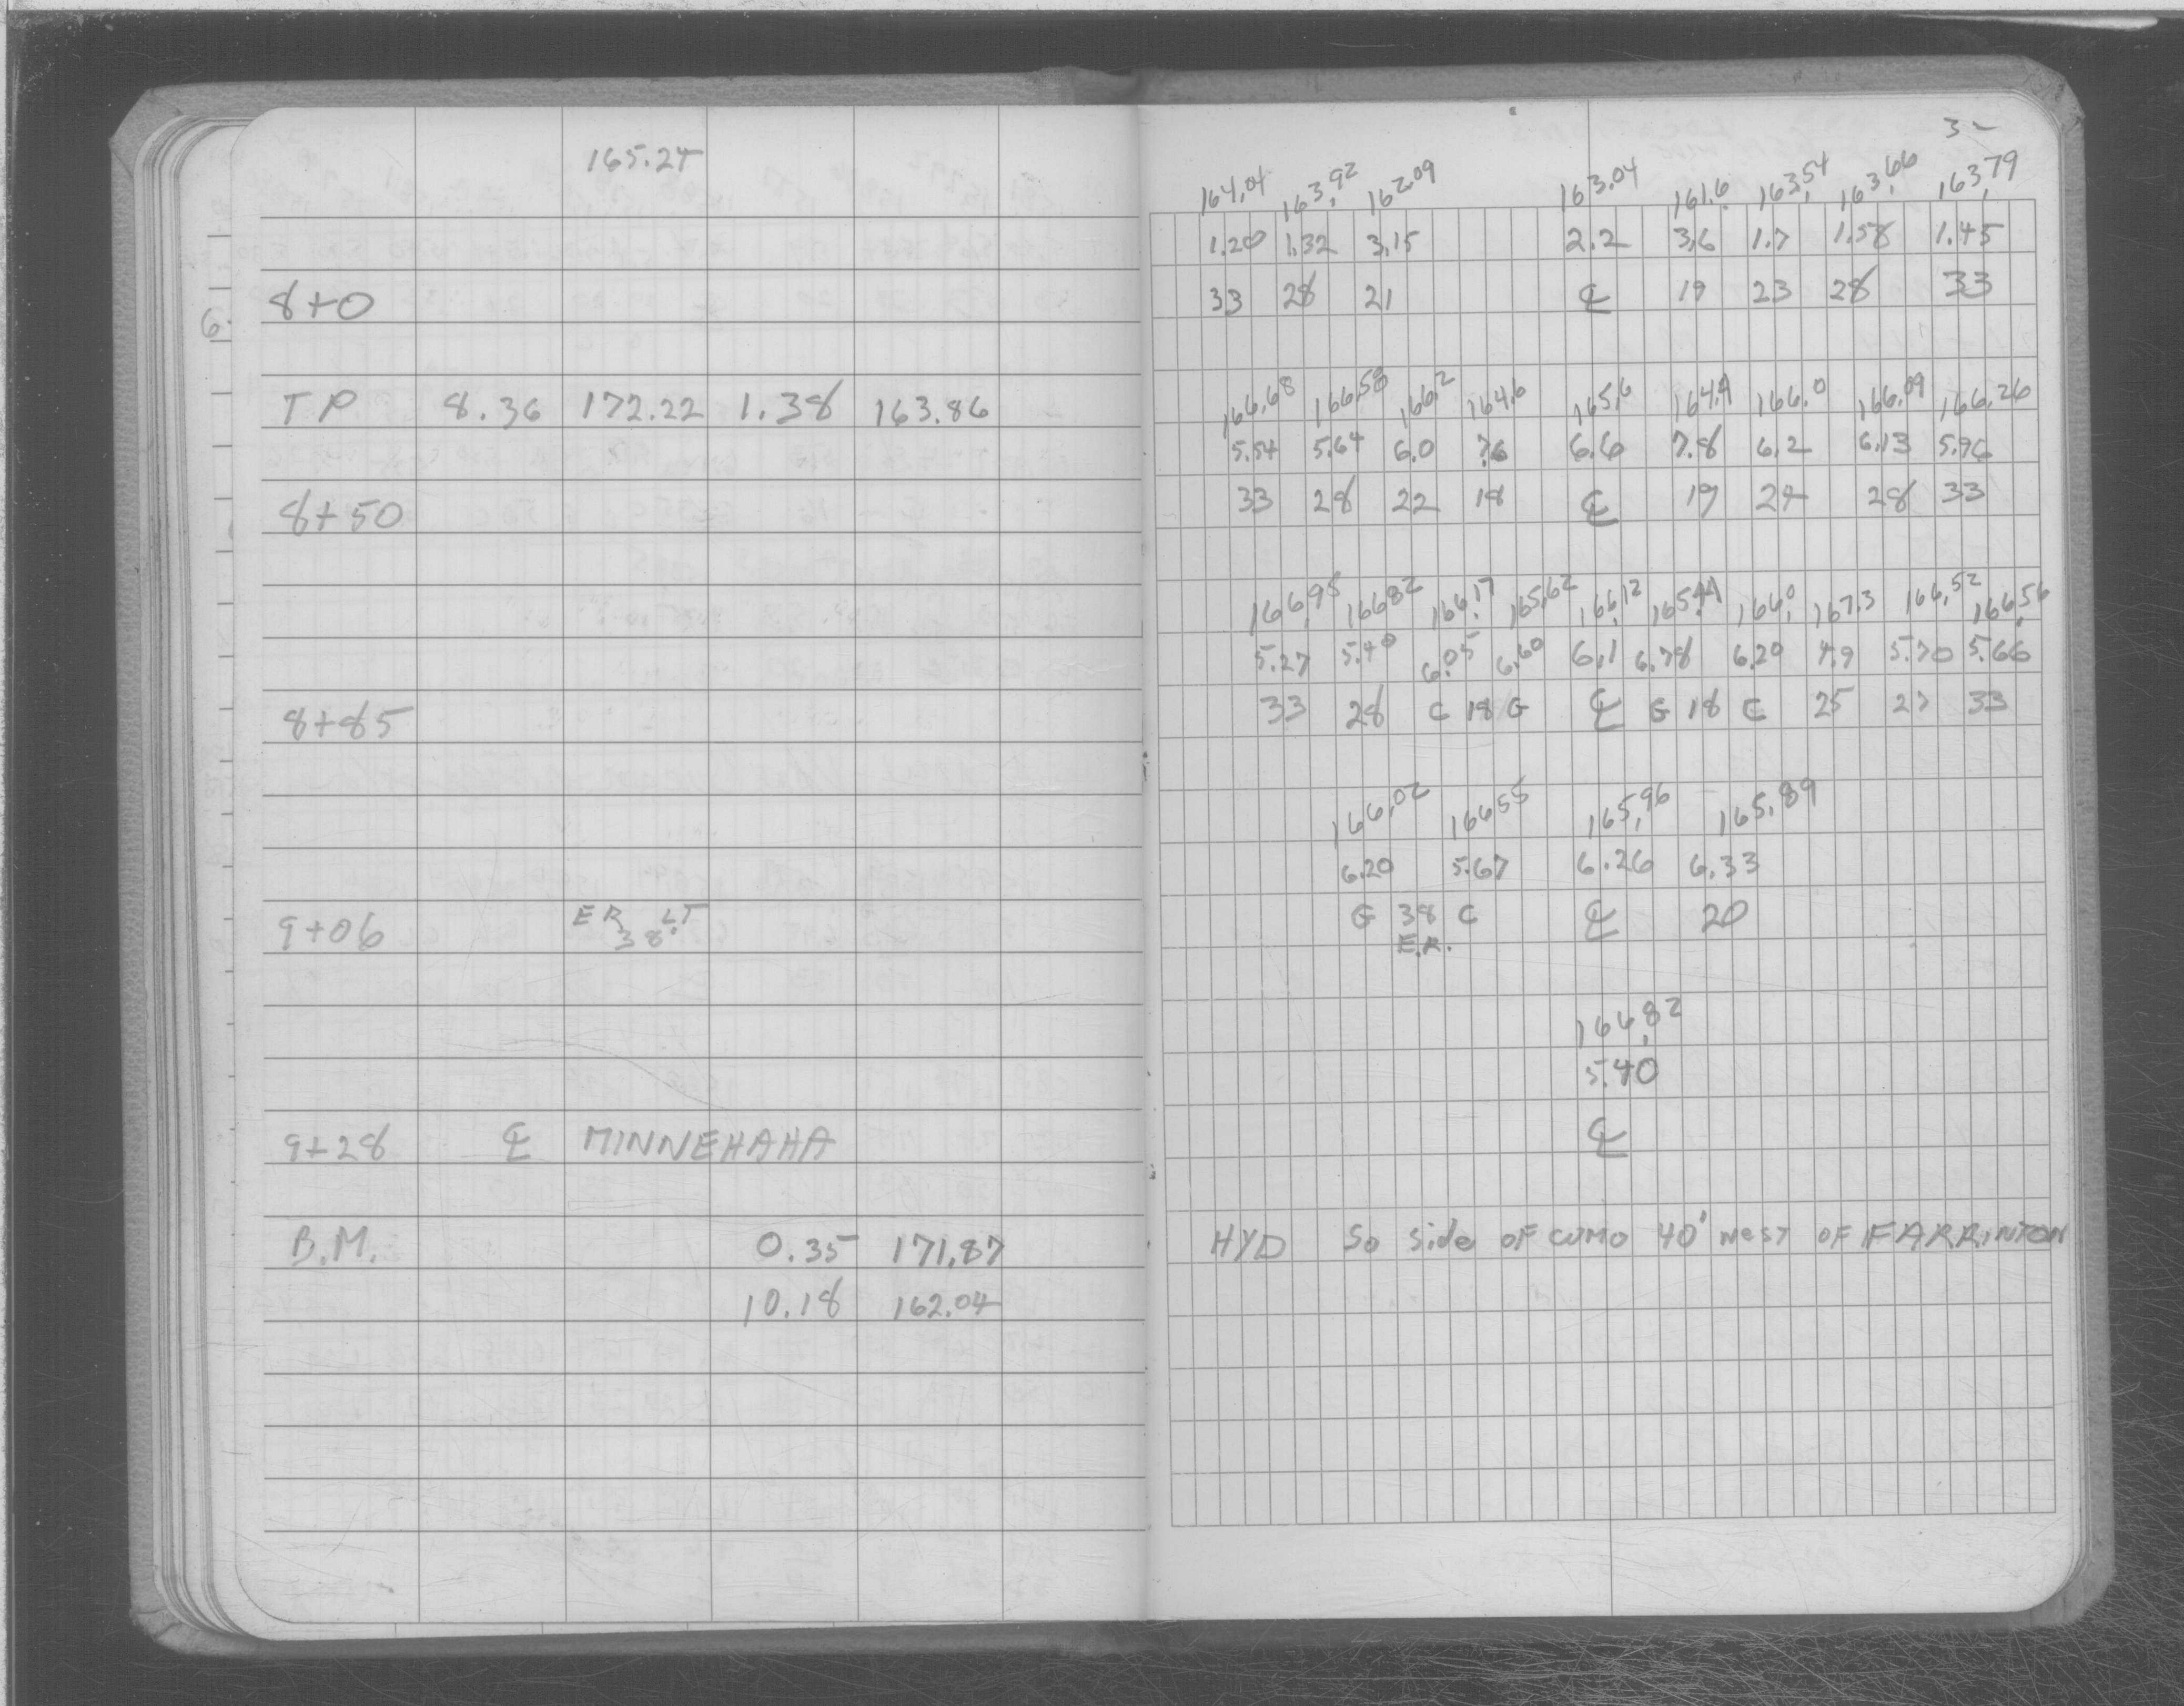 165.24
8+0
TP 8.36 172.22 1.38 163.86
8+50
8+85
9+06 ER LT.
38
9+28 ℄ MINNEHAHA
B.M. 0.35 171.87
10.18 162.04
6
3-
164.04 163.92 162.09 163.04 161.6 163.54 163.66 163.79
1.20 1.32 3.15 2.2 3.6 1.7 1.58 1.45
33 28 21 ℄ 19 23 28 33
166.68 166.58 166.2 164.6 165.6 164.4 166.0 166.09 166.26
5.54 5.64 6.0 7.6 6.6 7.8 6.2 6.13 5.96
33 28 22 18 ℄ 19 24 28 33
166.95 166.82 166.17 165.62 166.12 165.44 166.0 167.3 166.52 166.56
5.27 5.40 6.05 6.60 6.1 6.78 6.20 4.9 5.70 5.66
33 28 C 18 G ℄ G 18 C 25 27 33
166.02 166.55 165.96 165.89
6.20 5.67 6.26 6.33
G 38 C ℄ 20
E.R.
166.82
5.40
℄
HYD So side of COMO 40' West OF FARRINTON